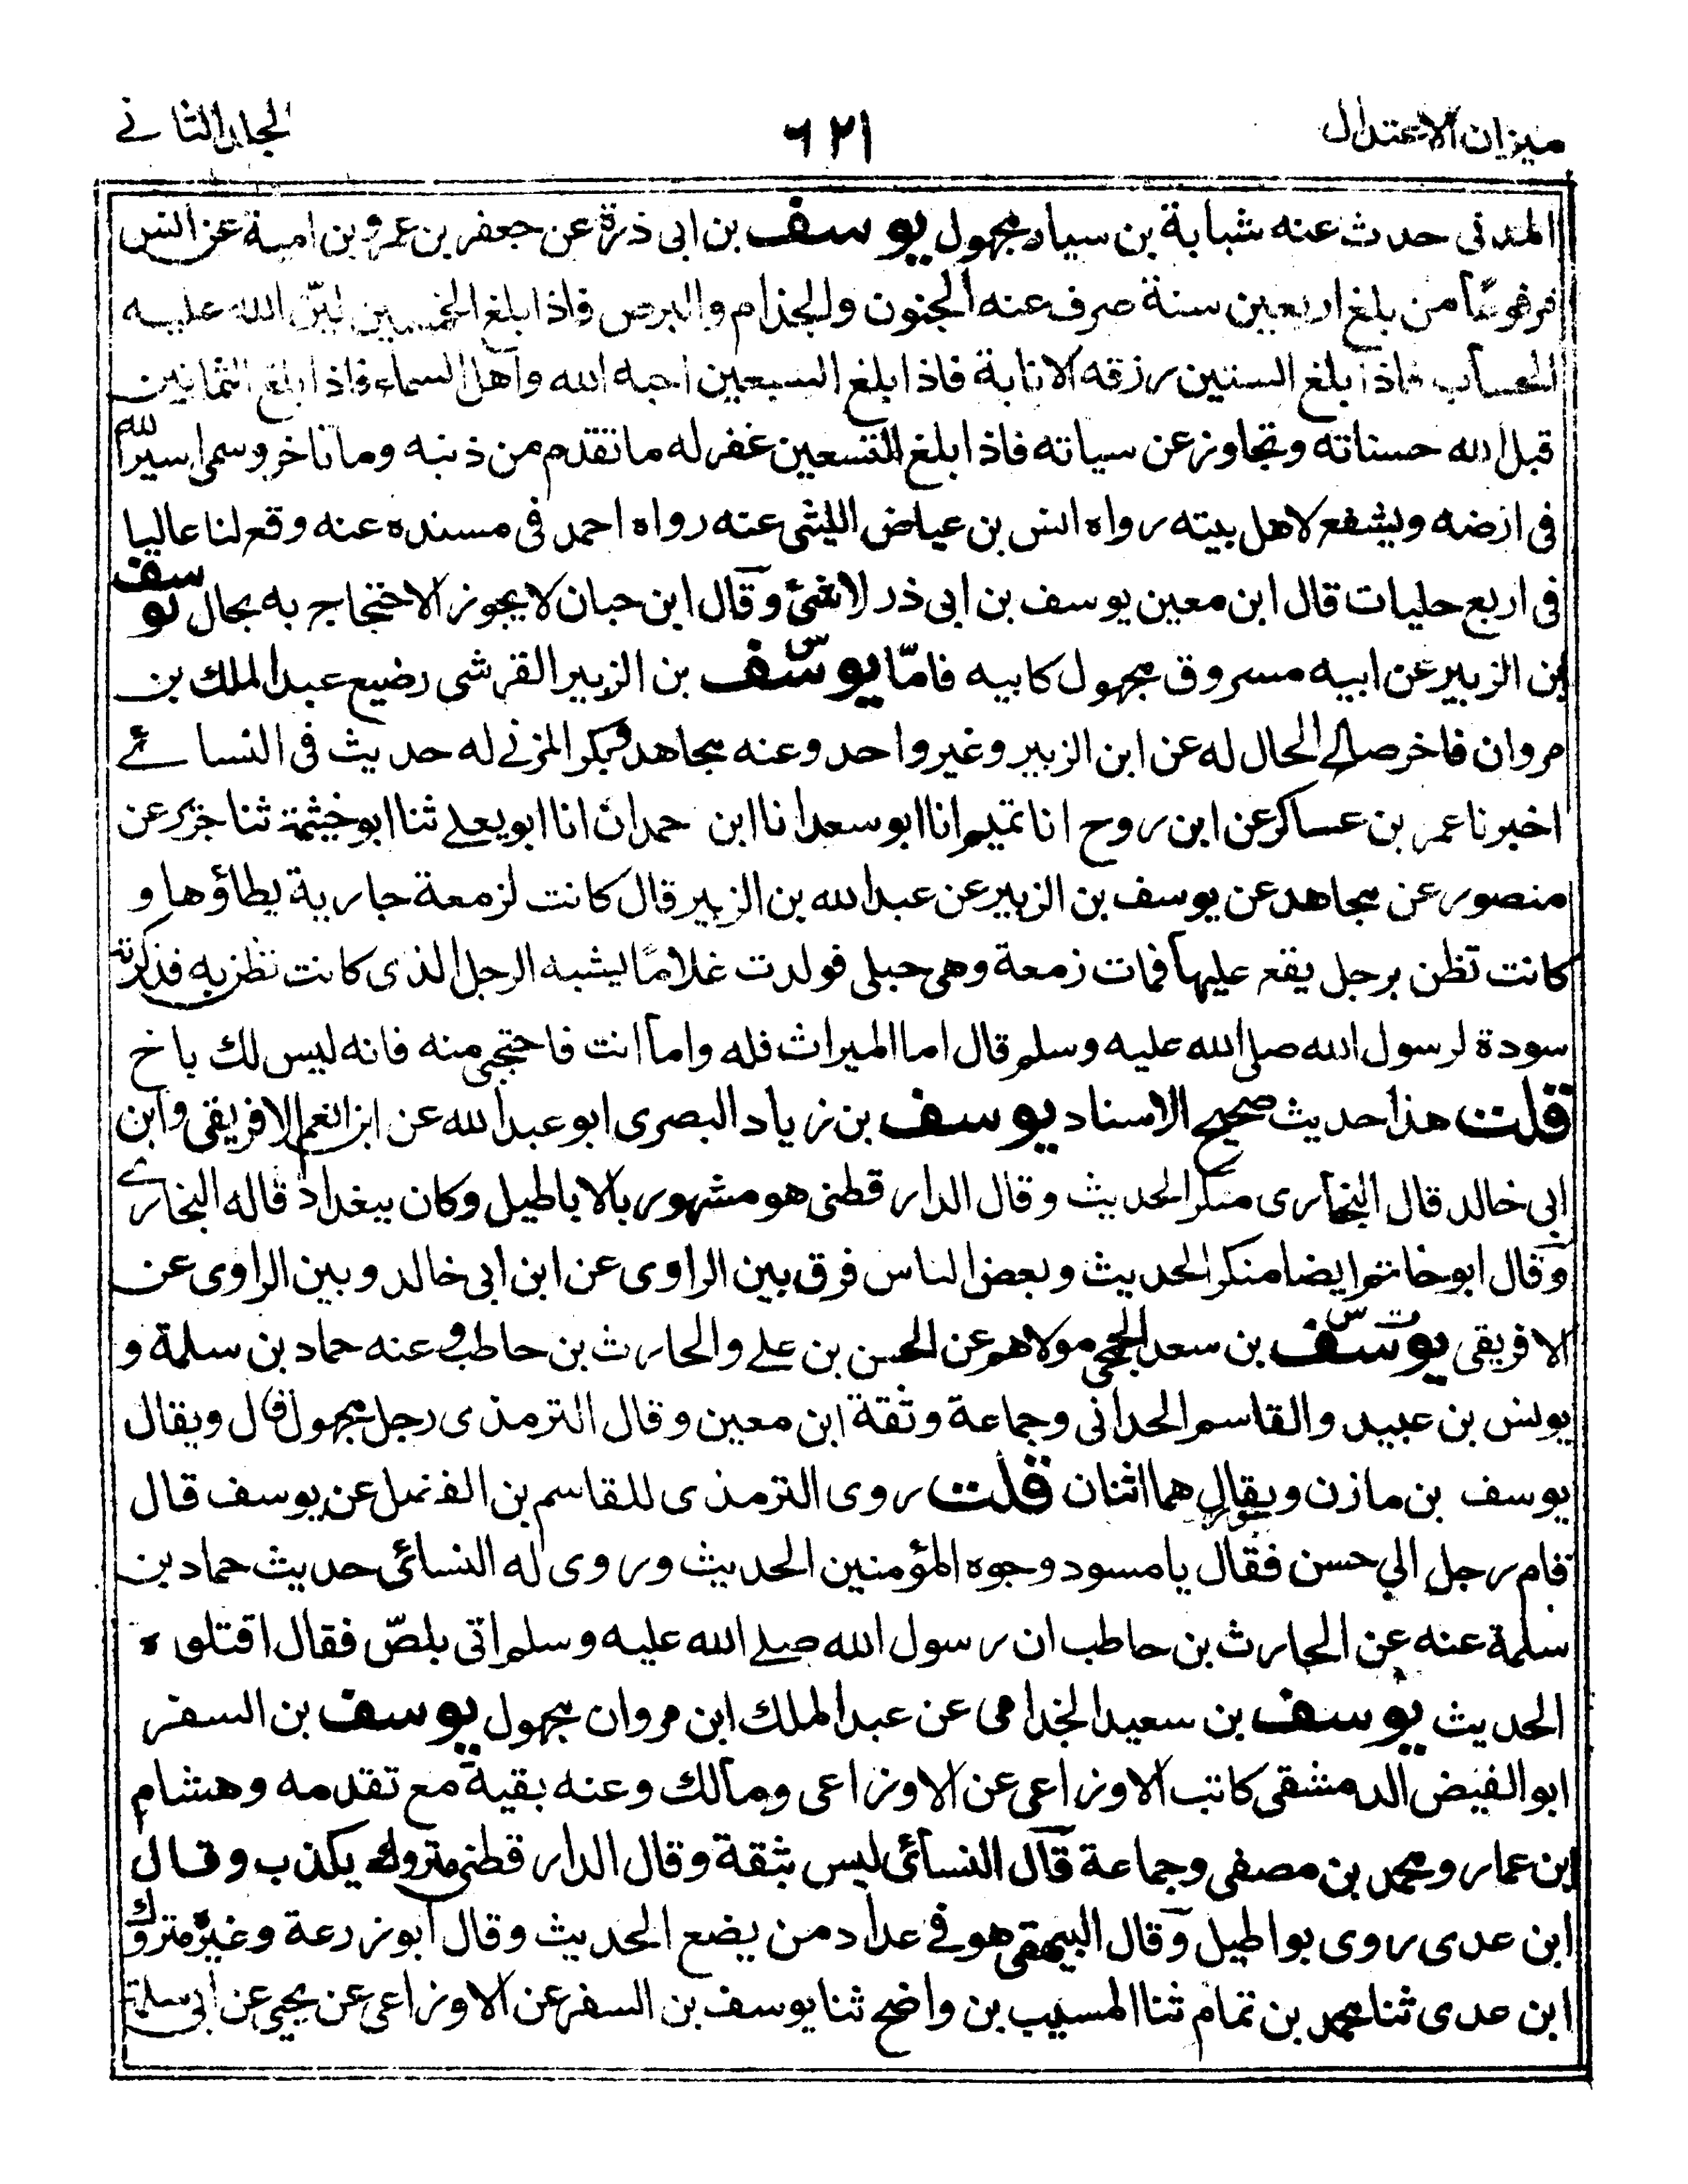 ميزان الاعتدال
٦٢١
الجلد الثاني
المدنى حدث عنه شبابة بن سيار مجهول يوسف بن ابى ذرة عن جعفر بن عمرو بن امية عن انس
مرفوعًا من بلغ اربعين سنة صرف عنه الجنون والجذام والبرص فاذا بلغ الخمسين ليّن الله عليه
الحساب فاذا بلغ الستين رزقه الانابة فاذا بلغ السبعين احبه الله واهل السماء فاذا بلغ الثمانين
قبل الله حسناته وتجاوز عن سياته فاذا بلغ التسعين غفر له ما تقدم من ذنبه وما تاخر وسمى اسير الله
فى ارضه ويشفع لاهل بيته رواه انس بن عياض الليثى عنه رواه احمد فى مسنده عنه وقع لنا عاليا
فى اربع حليات قال ابن معين يوسف بن ابى ذر لا شئ وقال ابن حبان لا يجوز الاحتجاج به بحال يوسف
بن الزبير عن ابيه مسروق مجهول كابيه فامّا يوسف س بن الزبير القرشى رضيع عبد الملك بن
مروان فاخر صالح الحال له عن ابن الزبير وغير واحد وعنه مجاهد وبكر المزنے له حديث فى النسائے
اخبرنا عمر بن عساكر عن ابن روح انا تميم انا ابو سعد انا ابن حمدان انا ابو يعلے ثنا ابو خيثمة ثنا جرير عن
منصور عن مجاهد عن يوسف بن الزبير عن عبد الله بن الزبير قال كانت لزمعة جارية يطاؤها و
كانت تظن برجل يقع عليها فمات زمعة وهى حبلى فولدت غلامًا يشبه الرجل الذى كانت تظن به فذكرته
سودة لرسول الله صلى الله عليه وسلم قال اما الميراث فله واما انت فاحتجبى منه فانه ليس لك باخ
قلت هذا حديث صحيح الاسناد يوسف بن زياد البصرى ابو عبد الله عن ابن انعم الافريقى وابن
ابى خالد قال البخارى منكر الحديث وقال الدارقطنى هو مشهور بالاباطيل وكان ببغداد قاله البخارے
وقال ابو حاتم ايضا منكر الحديث وبعض الناس فرق بين الراوى عن ابن ابى خالد وبين الراوى عن
الافريقى يوسف ت س بن سعد الجمحى مولاهم عن الحسن بن علے والحارث بن حاطب وعنه حماد بن سلمة و
يونس بن عبيد والقاسم الحدانى وجماعة وثقة ابن معين وقال الترمذى رجل مجهول قال ويقال
يوسف بن مازن ويقال هما اثنان قلت روى الترمذى للقاسم بن الفضل عن يوسف قال
قام رجل الى حسن فقال يا مسود وجوه المؤمنين الحديث وروى له النسائى حديث حماد بن
سلمة عنه عن الحارث بن حاطب ان رسول الله صلے الله عليه وسلم اتى بلصّ فقال اقتلوه
الحديث يوسف بن سعيد الجذامى عن عبد الملك ابن مروان مجهول يوسف بن السفر
ابو الفيض الدمشقى كاتب الاوزاعى عن الاوزاعى ومالك وعنه بقية مع تقدمه وهشام
بن عمار ومحمد بن مصفى وجماعة قال النسائى ليس بثقة وقال الدارقطنى متروك يكذب وقال
ابن عدى روى بواطيل وقال البيهقى هو فے عداد من يضع الحديث وقال ابو زرعة وغيره متروك
ابن عدى ثنا محمد بن تمام ثنا المسيب بن واضح ثنا يوسف بن السفر عن الاوزاعى عن يحيى عن ابى سلمة